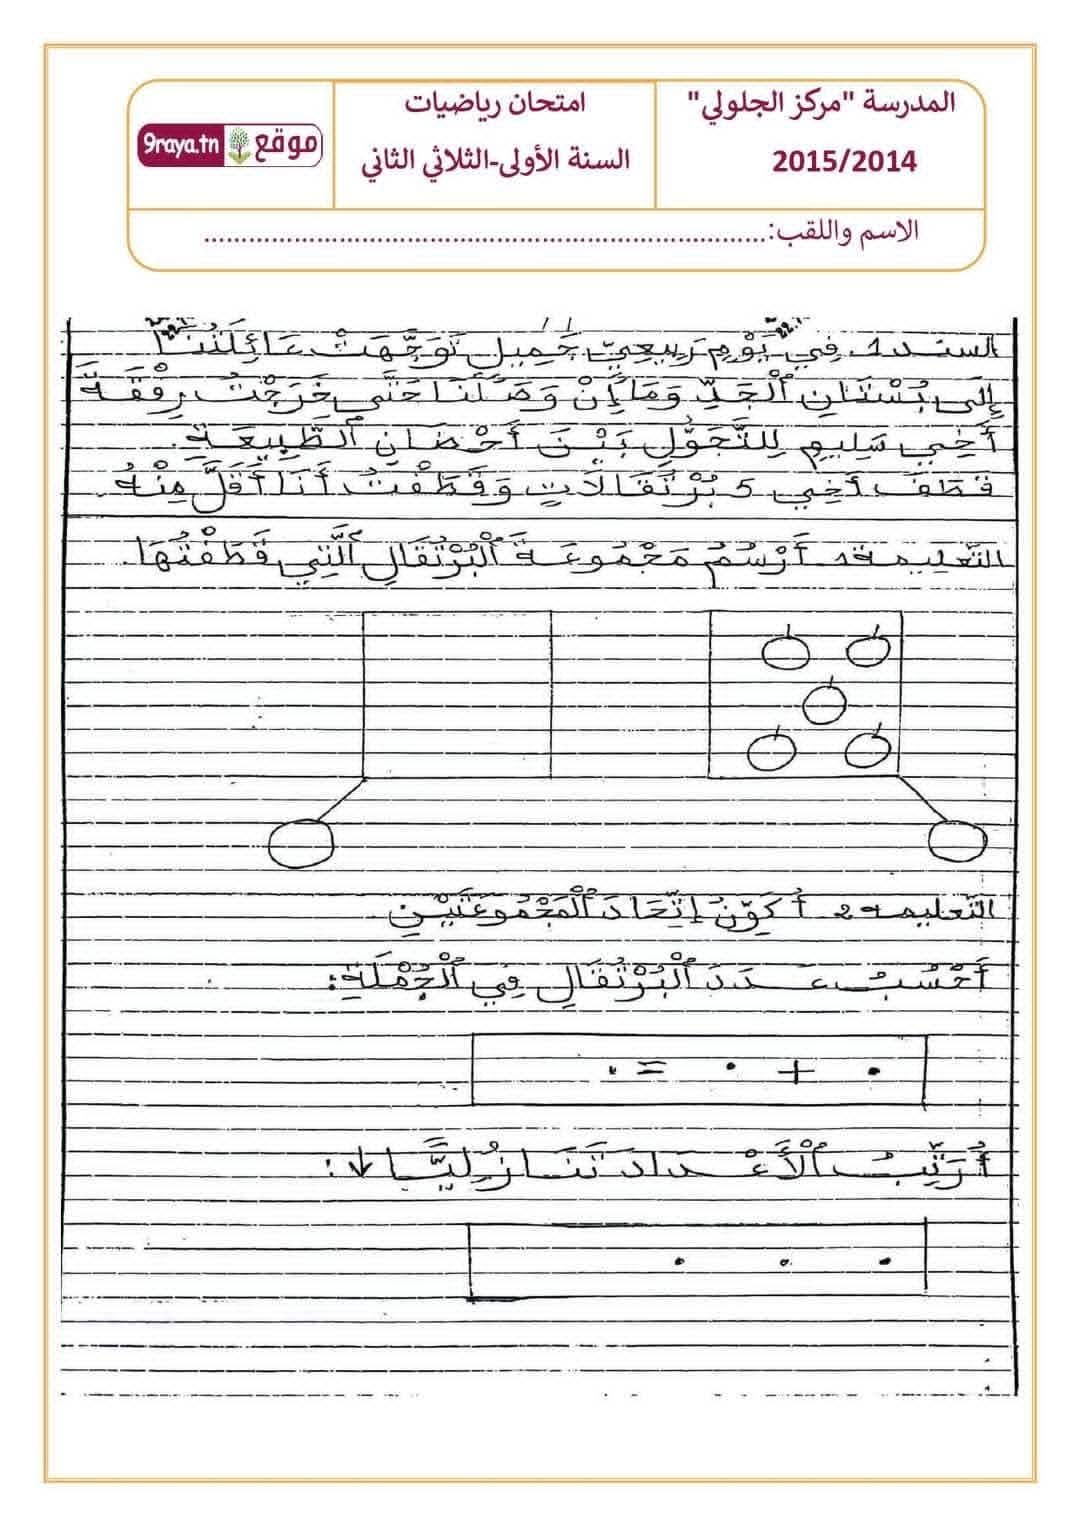 المدرسة "مركز الجلولي"
2015/2014
امتحان رياضيات
السنة الأولى-الثلاثي الثاني
موقع 9raya.tn
الاسم واللقب:............................................................................
السند 1. فِي يَوْمٍ رَبِيعِيٍّ جَمِيلٍ تَوَجَّهَتْ عَائِلَتُنَا
إِلَى بُسْتَانِ ٱلْجَدِّ وَمَا إِنْ وَصَلْنَا حَتَّى خَرَجْتُ رِفْقَةَ
أَخِي سَلِيمٍ لِلتَّجَوُّلِ بَيْنَ أَحْضَانِ ٱلطَّبِيعَةِ.
قَطَفَ أَخِي 5 بُرْتُقَالَاتٍ وَقَطَفْتُ أَنَا أَقَلَّ مِنْهُ.
التَّعْلِيمة 1. أَرْسُمُ مَجْمُوعَةَ ٱلْبُرْتُقَالِ ٱلَّتِي قَطَفْتُهَا.
التَّعليمة 2. أُكَوِّنُ إِتِّحَادَ ٱلْمَجْمُوعَتَيْنِ
أَحْسُبُ عَدَدَ ٱلْبُرْتُقَالِ فِي ٱلْجُمْلَةِ:
. + . = .
أُرَتِّبُ ٱلْأَعْدَادَ تَنَازُلِيًّا ↓:
. . .